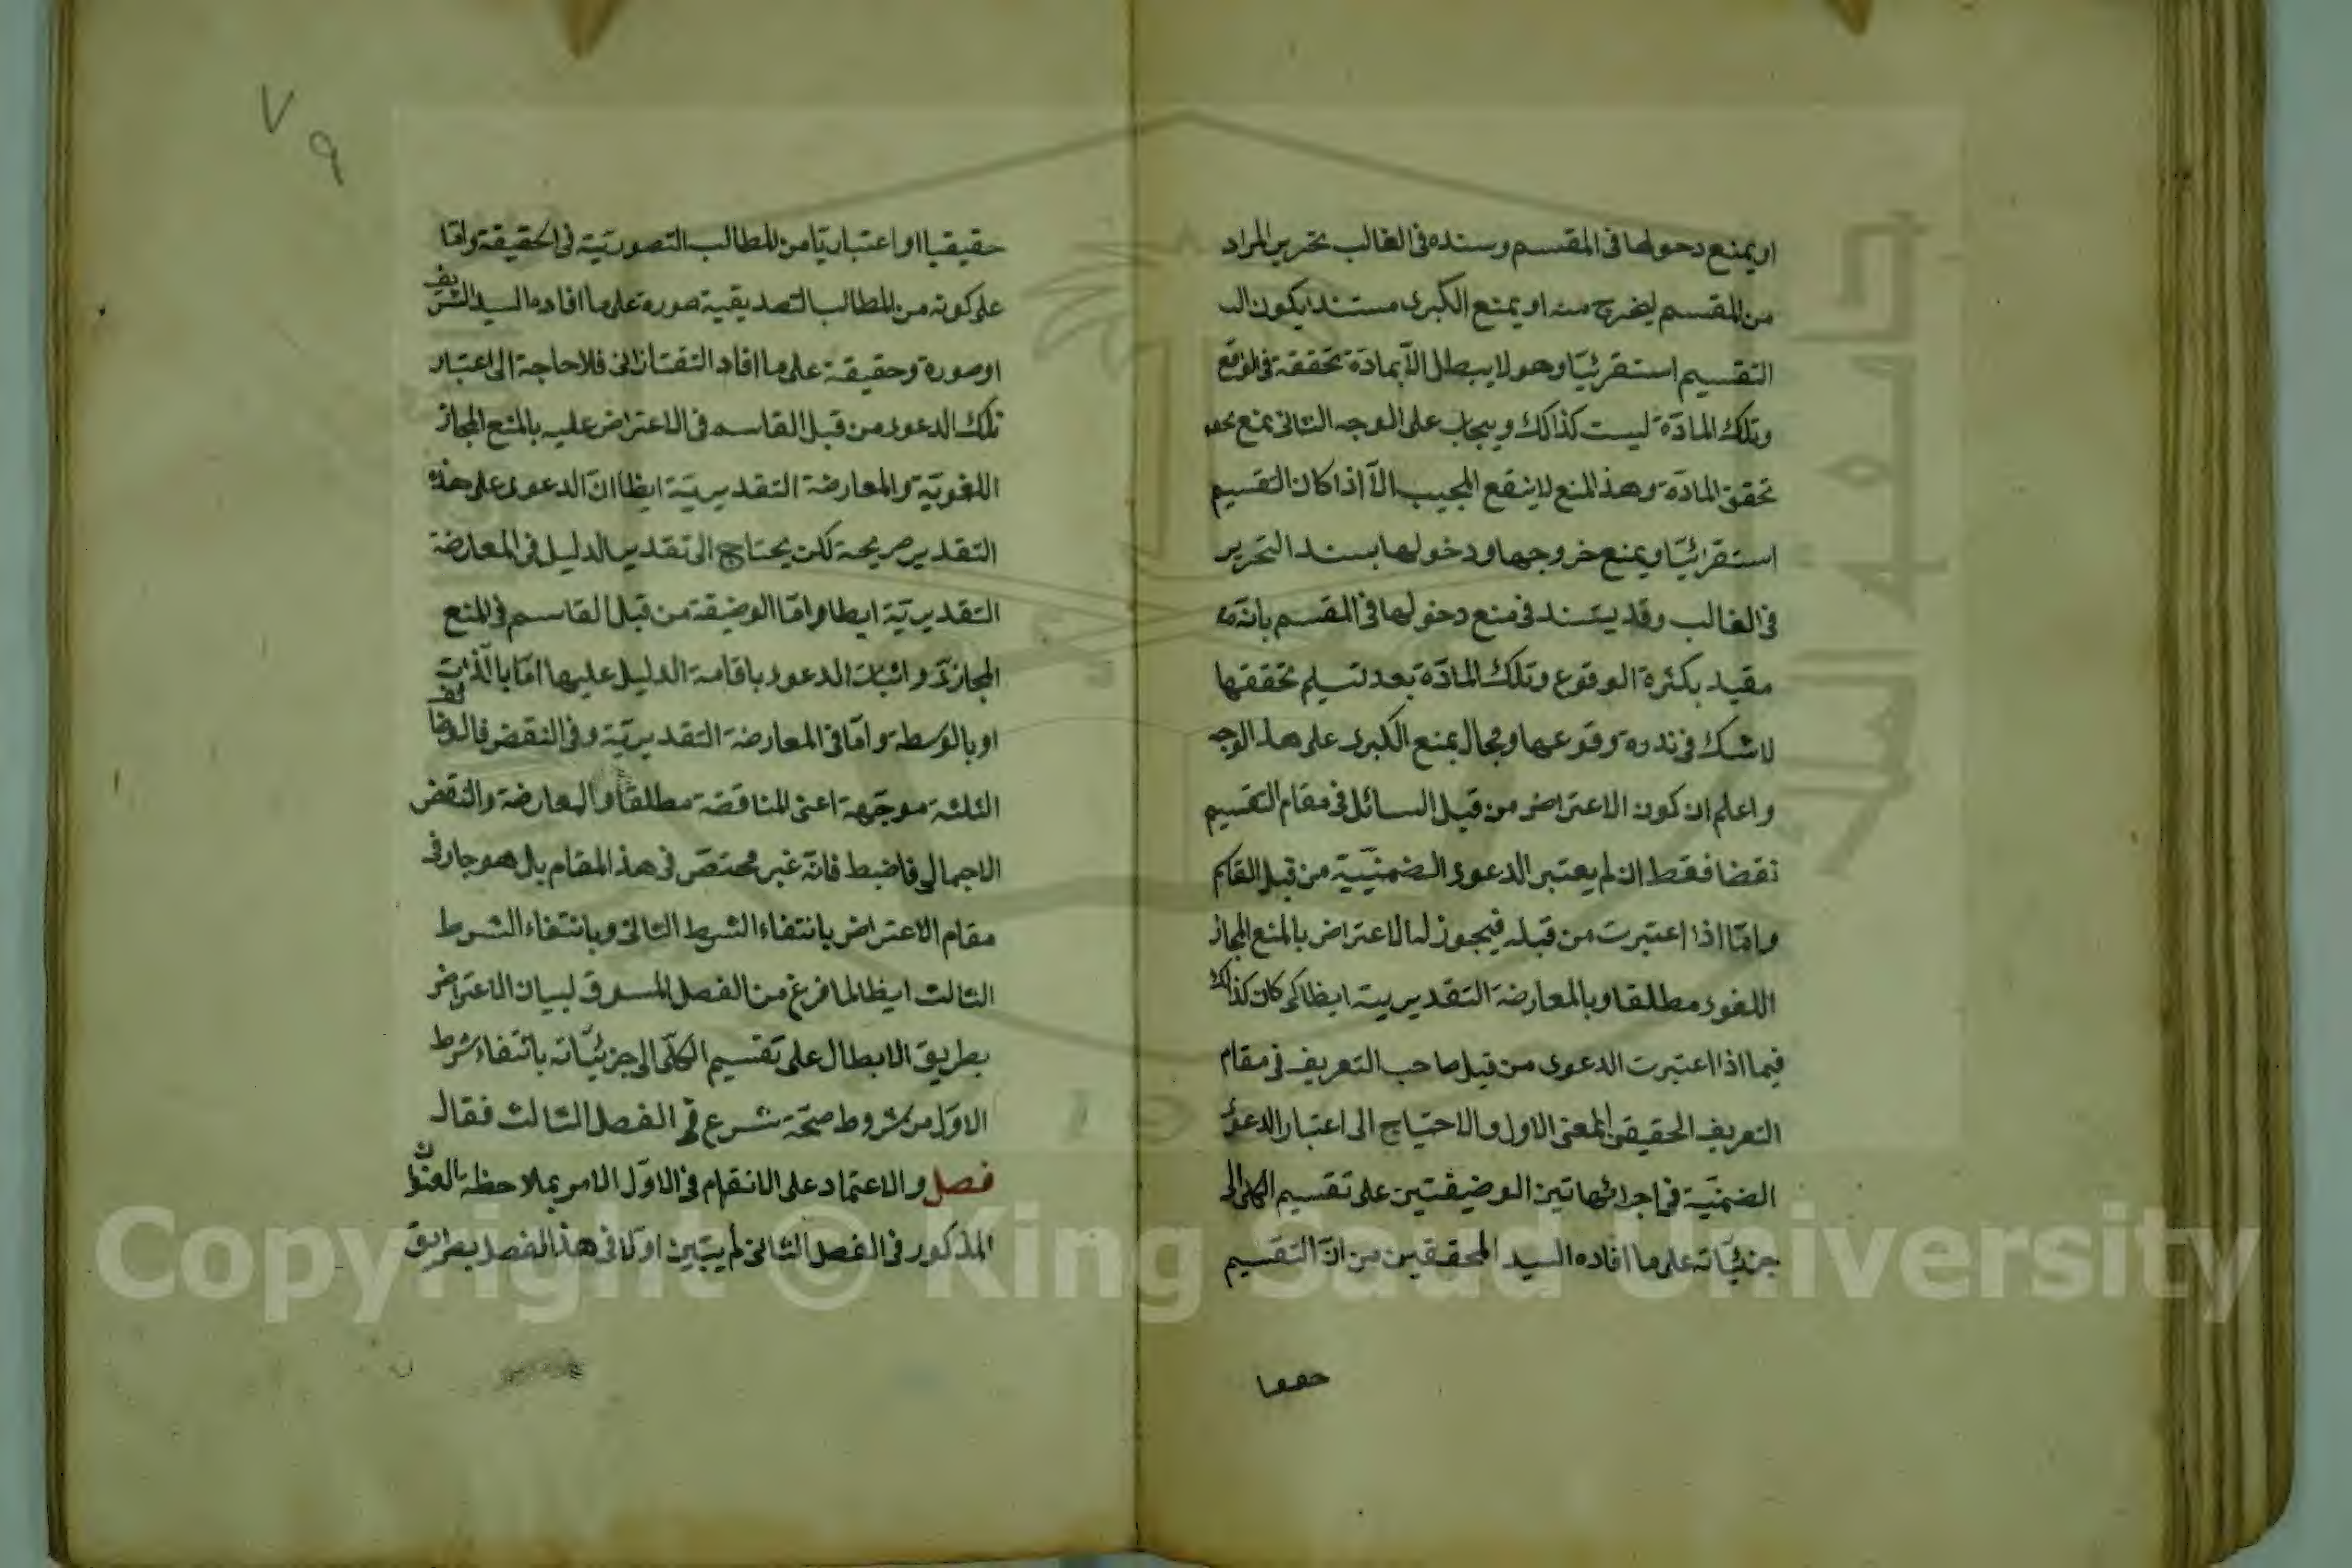 او يمنع دحولها فى المقسم وسنده فى الغالب بتحرير المراد
من المقسم ليخرج منه او يمنع الكبرى مستندا بكون
التقسيم استقرئيّا وهو لا يبطل الّا بمادّة تحققة فى الواقع
وتلك المادّة ليست كذالك ويجاب على الوجه الثانى بمنع
تحقق المادّة وهذ المنع لا ينفع المجيب الّا اذا كان التقسيم
استقرائيّا ويمنع خروجها ودخولها بسند التحرير
فى الغالب وقد يستند فى منع دخولها فى المقسم بانّه
مقيد بكثرة الوقوع وتلك المادّة بعد تسليم تحققها
لا شك فى ندرة وقوعها ومجال بمنع الكبرى على هذ الوجه
واعلم ان كون الاعتراض من قبل السائل فى مقام التقسيم
نقضا فقط ان لم يعتبر الدعوى الضمنيّية من قبل القاسم
وامّا اذا اعتبرت من قبله فيجوز له الاعتراض بالمنع المجاز
اللغوى مطلقا وبالمعارضة التقديريية ايظا كى كان كذالك
فيما اذا اعتبرت الدعوى من قبل صاحب التعريف فى مقام
التعريف الحقيقى المعنى الاول والاحتياج الى اعتبار الدعوى
الضمنيّة فى اجرائها تين الوضيفتين على تقسيم الكلى الى
جزئيّاته على ما افاده السيد المحققين من انّ التقسيم
حقيقيا
حقيقيا او اعتباريّا من المطالب التصوريّية فى الحقيقة وامّا
على كونه من المطالب التصديقية صورة على ما افاده السيد الشريف
او صورة وحقيقة على ما افاد التفتازانى فلا حاجة الى اعتبار
تلك الدعوى من قبل القاسم فى الاعتراض عليه بالمنع المجاز
اللغويّة والمعارضة التقديريّية ايظا انّ الدعوى على هذه
التقدير صريحة لكن يحتاج الى تقدير الدليل فى المعارضة
التقديريّة ايظا وامّا الوضيفة من قبل القاسم فى المنع
المجازىّ واثبات الدعوى باقامة الدليل عليها امّا بالّذات
او بالوسطة وامّا فى المعارضة التقديريّية وفى النقض فالوضائف
الثلثة موجّهة اعنى المناقضة مطلقا والمعارضة والنقض
الاجمالى فاضبط فانّه غير مختصّ فى هذ المقام بل هو جار فى
مقام الاعتراض بانتفاء الشرط الثانى وبانتفاء الشرط
الثالث ايظا لما فرغ من الفصل المسوق لبيان الاعتراض
بطريق الابطال على تقسيم الكلّى الى جزئيّاته بانتفاء شرط
الاوّل من شروط صحّته شرع فى الفصل الثالث فقال
فصل والاعتماد على الانفهام فى الاوّل الامر بملاحظة العنوان
المذكور فى الفصل الثانى لم يبيّين اوّلا فى هذ الفصل بطريق
٧٩
Copyright © King Saud University